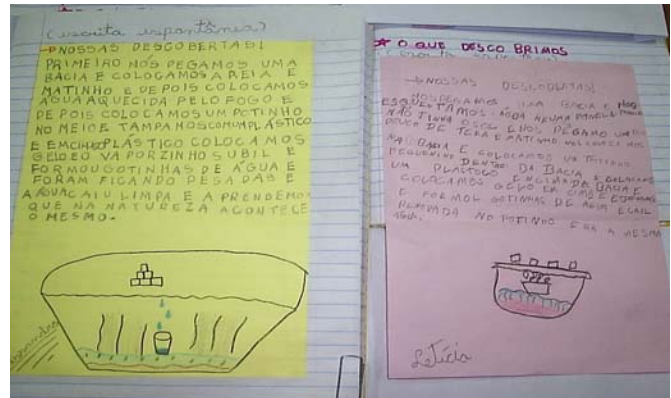 (escrita espontânea)
NOSSAS DESCOBERTAS!
PRIMEIRO NÓS PEGAMOS UMA
BACIA E COLOCAMOS AREIA E
MATINHO E DEPOIS COLOCAMOS
ÁGUA AQUECIDA PELO FOGO E
DEPOIS COLOCAMOS UM POTINHO
NO MEIO E TAMPAMOS COM UM PLÁSTICO
E EM CIMA DO PLÁSTICO COLOCAMOS
GELO E O VAPORZINHO SUBIL E
FORMOU GOTINHAS DE ÁGUA E
FORAM FICANDO PESADAS E
A ÁGUA CAIU LIMPA E APRENDEMOS
QUE NA NATUREZA ACONTECE
O MESMO.
O QUE DESCOBRIMOS
NOSSAS DESCOBERTAS!
NOS PEGAMOS UMA BACIA E NOS
ESQUENTAMOS AGUA NEUMA PANELA
NÃO TINHA E NOS PEGAMO UM
DE TERA E MATINHO
NA BACIA E COLOCAMOS UM POTINHO
PEQUENINO DENTRO DA BACIA E
UM PLASTICO ENCIMA DA BACIA E
COLOCAMOS GELO EM CIMA E
E FORMOL GOTINHAS DE AGUA E CAIL
NO POTINHO ERA A MESMA
AGUA.
Letícia